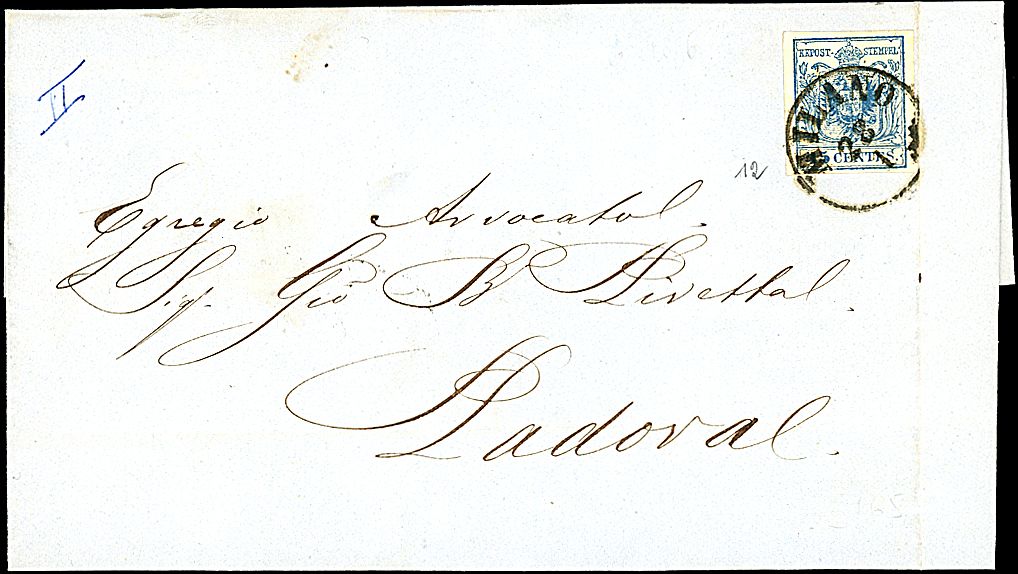 II
KKPOST-STEMPEL
MILANO
28
1
45 CENTES.
12
Egregio Avvocato
Sigr. Gio B Pivetta.
Padova.